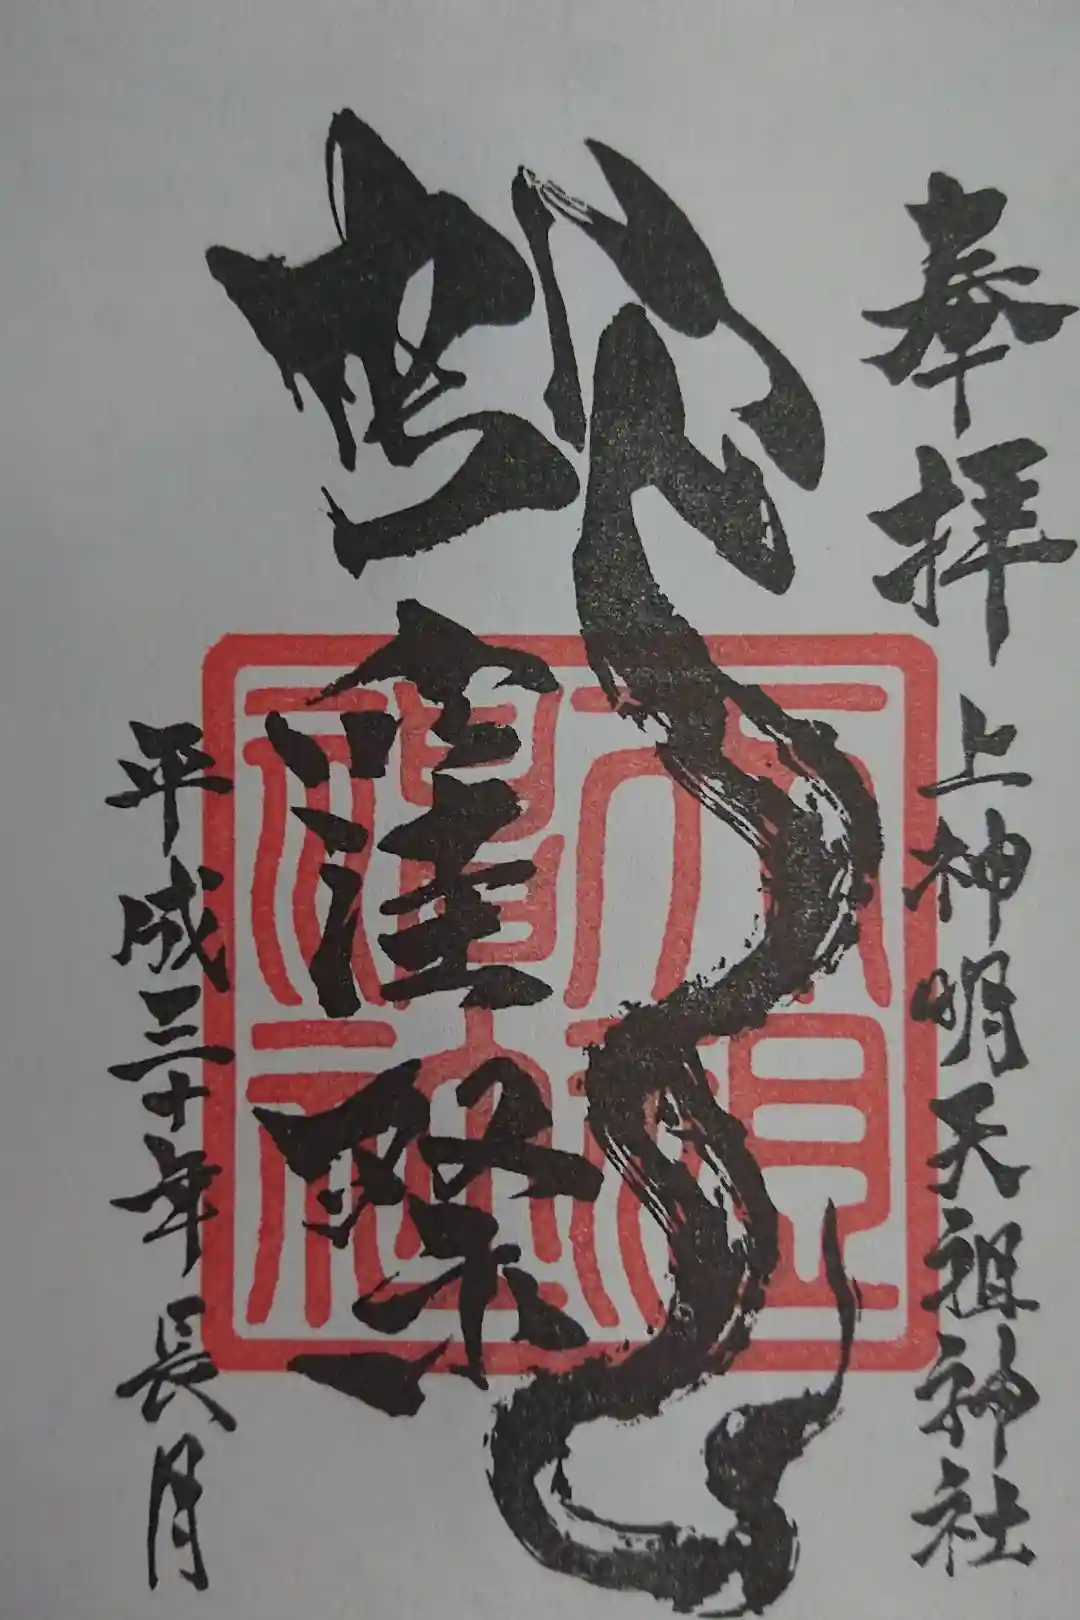 奉拝 上神明天祖神社
蛇窪祭
平成三十年長月
天祖神社